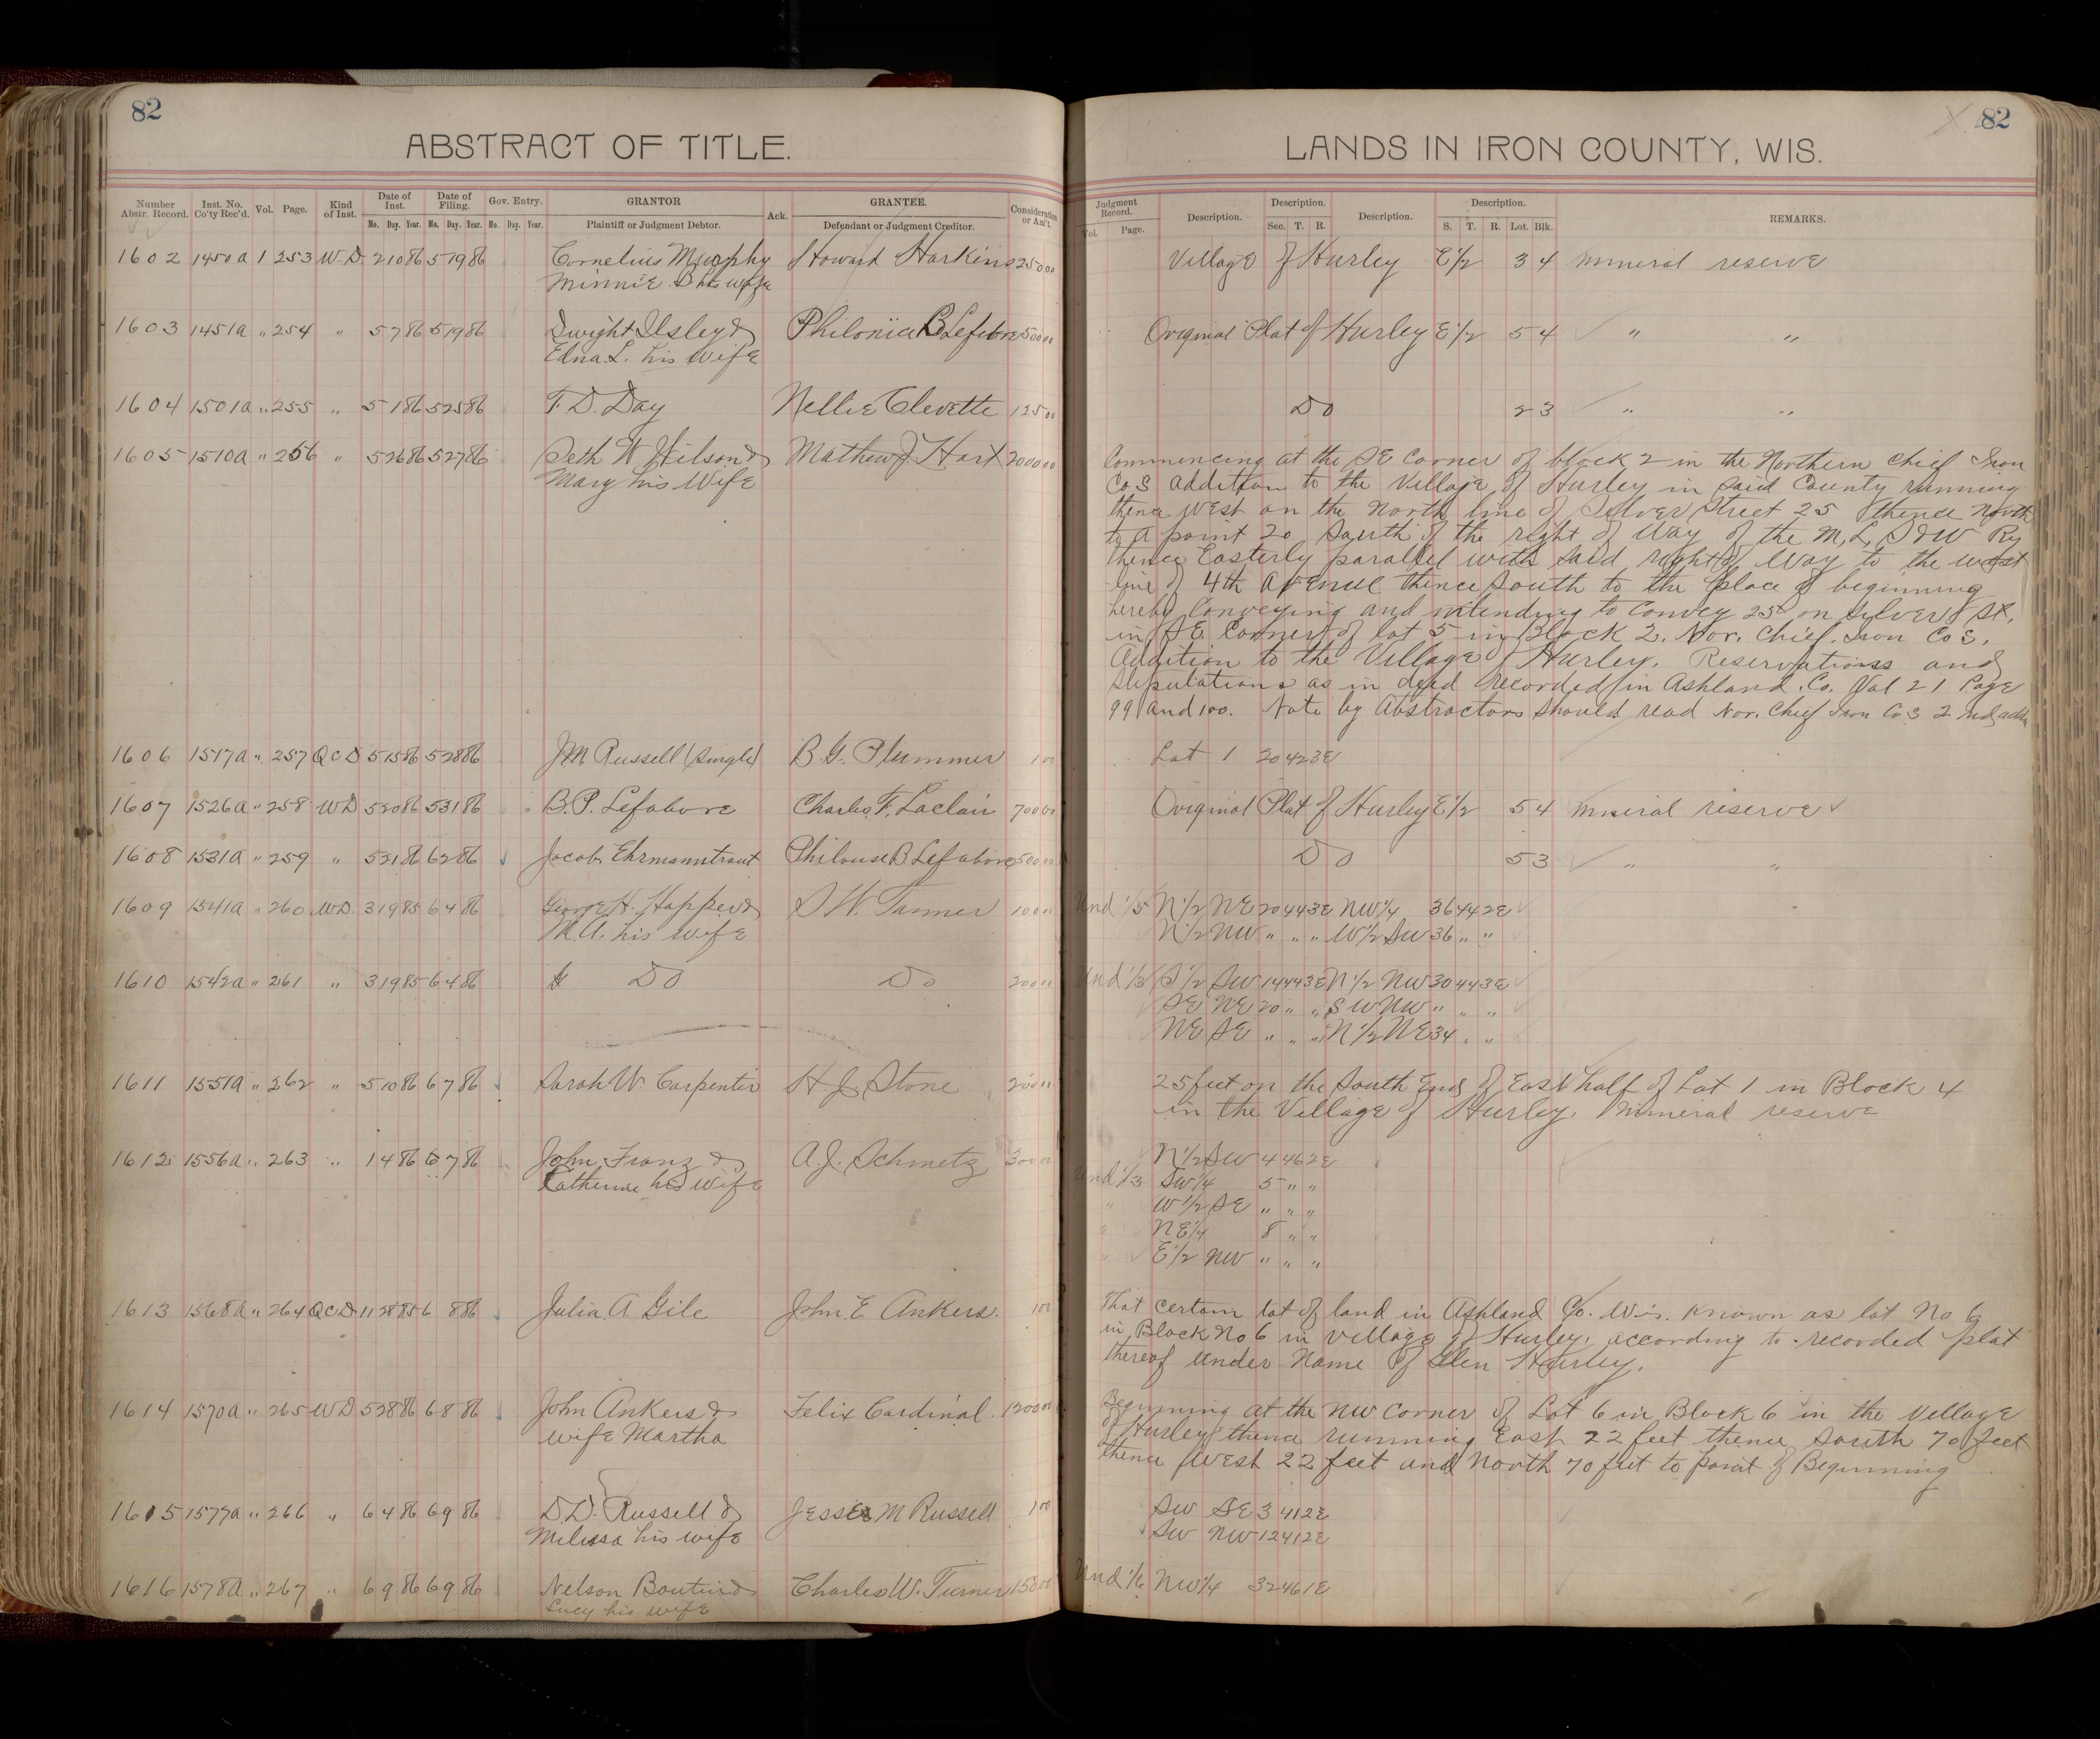 82
ABSTRACT OF TITLE.
Number Abstr. Record. Inst. No. Co'ty Rec'd. Vol. Page. Kind of Inst. Date of Inst. Date of Filing. Gov. Entry. GRANTOR Ack. GRANTEE. Consideration or Am't.
Mo. Day. Year. Mo. Day. Year. Mo. Day. Year. Plaintiff or Judgment Debtor. Defendant or Judgment Creditor.
1602 1450a 1 253 W.D. 2 10 86 5 19 86 Cornelius Murphy Howard Harkins 250 00
Minnie B his wife
1603 1451a " 254 " 5 7 86 5 19 86 Dwight Ilsley & Philonia B Lefebre 500 00
Edna L. his wife
1604 1501a " 255 " 5 1 86 5 25 86 T. D. Day Nellie Clevette 125 00
1605 1510a " 256 " 5 26 86 5 27 86 Seth W Wilson & Mathew J. Hart 2000 00
Mary his Wife
1606 1517a " 257 QCD 5 15 86 5 28 86 J M Russell (single) B. G. Plummer 1 00
1607 1526a " 258 WD 5 20 86 5 31 86 B. P. Lefabore Charles F. Laclair 700 00
1608 1531a " 259 " 5 21 86 6 2 86 Jacob Ehrmanntraut Philouse B Lefabore 500 00
1609 1541a " 260 WD. 3 19 85 6 4 86 George H. Hopper & S. W. Tanner 100 00
M. A. his wife
1610 1542a " 261 " 3 19 85 6 4 86 Do Do 200 00
1611 1551a " 262 " 5 10 86 6 7 86 Sarah W Carpenter H. J. Stone 200 00
1612 1556a " 263 " 1 4 86 6 7 86 John Franz & A. J. Schmetz 300 00
Catherine his wife
1613 1568a " 264 QCD 11 28 85 6 8 86 Julia A Gile John E Ankers. 1 00
1614 1570a " 265 WD 5 28 86 6 8 86 John Ankers & Felix Cardinal. 1200 00
wife Martha
1615 1577a " 266 " 6 4 86 6 9 86 D. D. Russell & Jesse M Russell 1 00
Melissa his wife
1616 1578a " 267 " 6 9 86 6 9 86 Nelson Boutin & Charles W. Turner 150 00
Lucy his wife
82
LANDS IN IRON COUNTY, WIS.
Judgment Record. Description. Description. Description. Description. REMARKS.
Vol. Page. Sec. T. R. S. T. R. Lot. Blk.
Village of Hurley E 1/2 3 4 Mineral reserve
Original Plat of Hurley E 1/2 5 4 " "
Do 2 3 " "
Commencing at the SE Corner of block 2 in the Northern Chief Iron
Co S addition to the Village of Hurley in said County running
thence West on the North line of Silver Street 25 thence North
to a point 20 South of the right of Way of the M, L, S & W Ry
thence Easterly parallel with said right of Way to the west
line of 4th avenue thence South to the place of beginning
hereby Conveying and intending to Convey 25 on Silver St.
in SE Corner of lot 5 in Block 2. Nor. Chief. Iron Co S.
Addition to the Village of Hurley. Reservations and
stipulations as in deed recorded in Ashland. Co. Vol 21 Page
99 and 100. Note by Abstractors should read Nor. Chief Iron Co S 2nd addn
Lot 1 20 42 3E
Original Plat of Hurley E 1/2 5 4 Mineral reserve
Do 5 3 " "
Und 1/5 N 1/2 NE 20 44 3E NW 1/4 36 44 2E
N 1/2 NW " " " W 1/2 SW 36 " "
Und 1/3 S 1/2 SW 14 44 3E N 1/2 NW 30 44 3E
SE NE 20 " " SW NW " " "
NE SE " " " N 1/2 NE 34 " "
25 feet on the South End of East half of Lot 1 in Block 4
in the Village of Hurley. Mineral reserve
N 1/2 SW 4 46 2E
Und 1/3 SW 1/4 5 " "
" W 1/2 SE " " "
" NE 1/4 8 " "
" E 1/2 NW " " "
That certain lot of land in Ashland Co. Wis. known as lot No 6
in Block No 6 in Village of Hurley, according to recorded plat
thereof under Name of Glen Hurley.
Beginning at the NW Corner of Lot 6 in Block 6 in the Village
of Hurley thence running East 22 feet thence South 70 feet
thence West 22 feet and North 70 feet to point of Beginning
SW SE 3 41 2E
SW NW 12 41 2E
Und 1/6 NW 1/4 32 46 1E